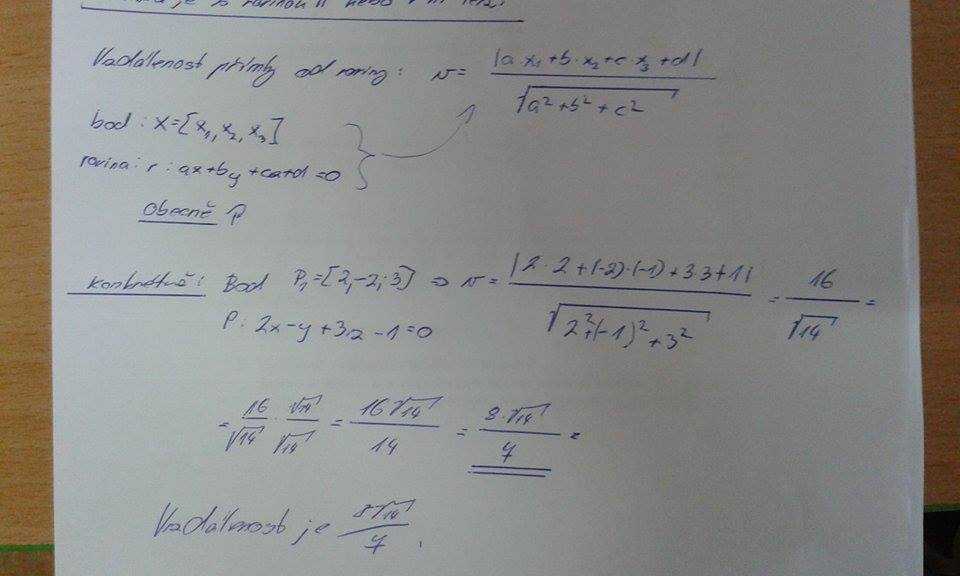 je s rovinou nebo v ní leží.
Vzdálenost přímky od roviny: v = |a x₁ + b·x₂ + c·x₃ + d| / √(a² + b² + c²)
bod: X = [x₁, x₂, x₃]
rovina: r: ax + by + ca + d = 0
Obecně ↑
Konkrétně: Bod P₁ = [2; -2; 3] ⇒ v = |2·2 + (-2)·(-1) + 3·3 + 1| / √(2² + (-1)² + 3²) = 16 / √14 =
P: 2x - y + 3z - 1 = 0
= 16/√14 · √14/√14 = 16√14 / 14 = 8·√14 / 7 =
Vzdálenost je 8√14 / 7 .